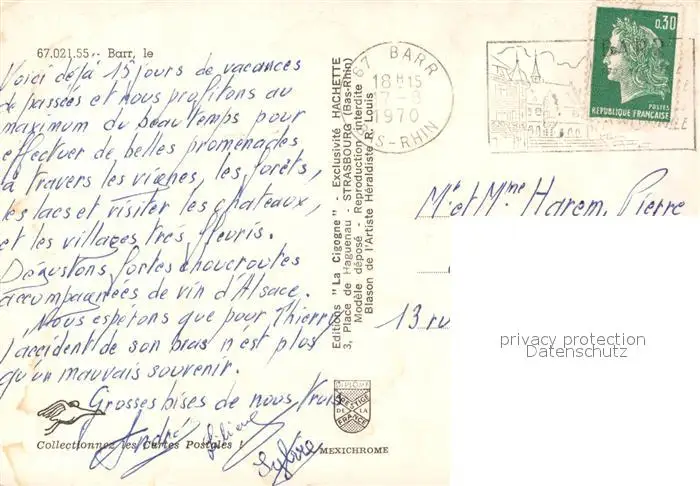 67.021.55 - Barr, le
Voici déjà 15 jours de vacances
de passées et nous profitons au
maximum du beau temps pour
effectuer de belles promenades
à travers les vignes, les forêts,
les lacs et visiter les chateaux,
et les villages très fleuris.
Dégustons fortes choucroutes
accompagnées de vin d'Alsace.
Nous espérons que pour Thierry
l'accident de son bras n'est plus
qu'un mauvais souvenir.
Grosses bises de nous trois
André Liliane
Sylvie
Collectionnez les Cartes Postales !
Editions "La Cigogne" - Exclusivité HACHETTE
3, Place de Haguenau - STRASBOURG (Bas-Rhin)
Modèle déposé - Reproduction interdite
Blason de l'Artiste Héraldiste R. Louis
DIPLOME
PRESTIGE
DE LA
FRANCE
MEXICHROME
67 BARR
18H15
7-8
1970
BAS-RHIN
0,30
POSTES
REPUBLIQUE FRANÇAISE
Mr et Mme Harem, Pierre
13 ru
privacy protection
Datenschutz